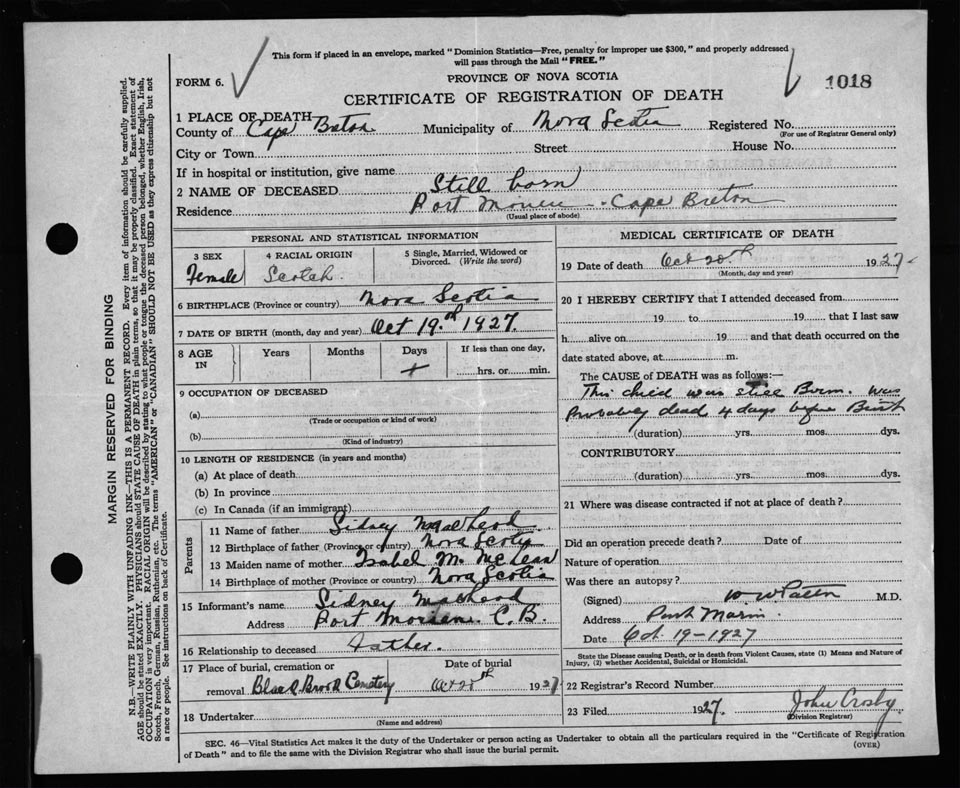 This form if placed in an envelope, marked "Dominion Statistics—Free, penalty for improper use $300," and properly addressed
will pass through the Mail "FREE."
FORM 6.
PROVINCE OF NOVA SCOTIA
1018
CERTIFICATE OF REGISTRATION OF DEATH
1 PLACE OF DEATH
County of Cape Breton Municipality of Nova Scotia Registered No.
(For use of Registrar General only)
City or Town Street House No.
If in hospital or institution, give name
2 NAME OF DECEASED Still born
Residence Port Cape Breton
(Usual place of abode)
PERSONAL AND STATISTICAL INFORMATION
3 SEX 4 RACIAL ORIGIN 5 Single, Married, Widowed or
Divorced. (Write the word)
Female Scotch
6 BIRTHPLACE (Province or country) Nova Scotia
7 DATE OF BIRTH (month, day and year) Oct 19th 1927
8 AGE IN Years Months Days If less than one day,
hrs. or min.
9 OCCUPATION OF DECEASED
(a)
(Trade or occupation or kind of work)
(b)
(Kind of industry)
10 LENGTH OF RESIDENCE (in years and months)
(a) At place of death
(b) In province
(c) In Canada (if an immigrant)
Parents
11 Name of father Sidney MacLeod
12 Birthplace of father (Province or country) Nova Scotia
13 Maiden name of mother Isabel M. McLean
14 Birthplace of mother (Province or country) Nova Scotia
15 Informant's name Sidney MacLeod
Address Port Morien C. B.
16 Relationship to deceased Father.
17 Place of burial, cremation or Date of burial
removal Black Brook Cemetery Oct 20th 1927
18 Undertaker
(Name and address)
MEDICAL CERTIFICATE OF DEATH
19 Date of death Oct 20th 1927
(Month, day and year)
20 I HEREBY CERTIFY that I attended deceased from
19 to 19 that I last saw
h alive on 19 and that death occurred on the
date stated above, at m.
The CAUSE of DEATH was as follows:—
This child was still Born. was
Probably dead 4 days before Birth
(duration) yrs. mos. dys.
CONTRIBUTORY
(duration) yrs. mos. dys.
21 Where was disease contracted if not at place of death?
Did an operation precede death? Date of
Nature of operation
Was there an autopsy?
(Signed) M.D.
Address Port
Date Oct. 19-1927
State the Disease causing Death, or in death from Violent Causes, state (1) Means and Nature of
Injury, (2) whether Accidental, Suicidal or Homicidal.
22 Registrar's Record Number
23 Filed 1927. John Crosby
(Division Registrar)
SEC. 46—Vital Statistics Act makes it the duty of the Undertaker or person acting as Undertaker to obtain all the particulars required in the "Certificate of Registration
of Death" and to file the same with the Division Registrar who shall issue the burial permit.
(OVER)
MARGIN RESERVED FOR BINDING
N.B.—WRITE PLAINLY WITH UNFADING INK—THIS IS A PERMANENT RECORD. Every item of information should be carefully supplied.
AGE should be stated EXACTLY. PHYSICIANS should STATE CAUSE OF DEATH in plain terms, so that it may be properly classified. Exact statement of
OCCUPATION is very important. RACIAL ORIGIN will be described by stating to what people or tongue the deceased person belonged, whether English, Irish,
Scotch, French, German, Russian, Ruthenian, etc. The terms "AMERICAN" or "CANADIAN" SHOULD NOT BE USED as they express citizenship but not
a race or people. See instructions on back of Certificate.